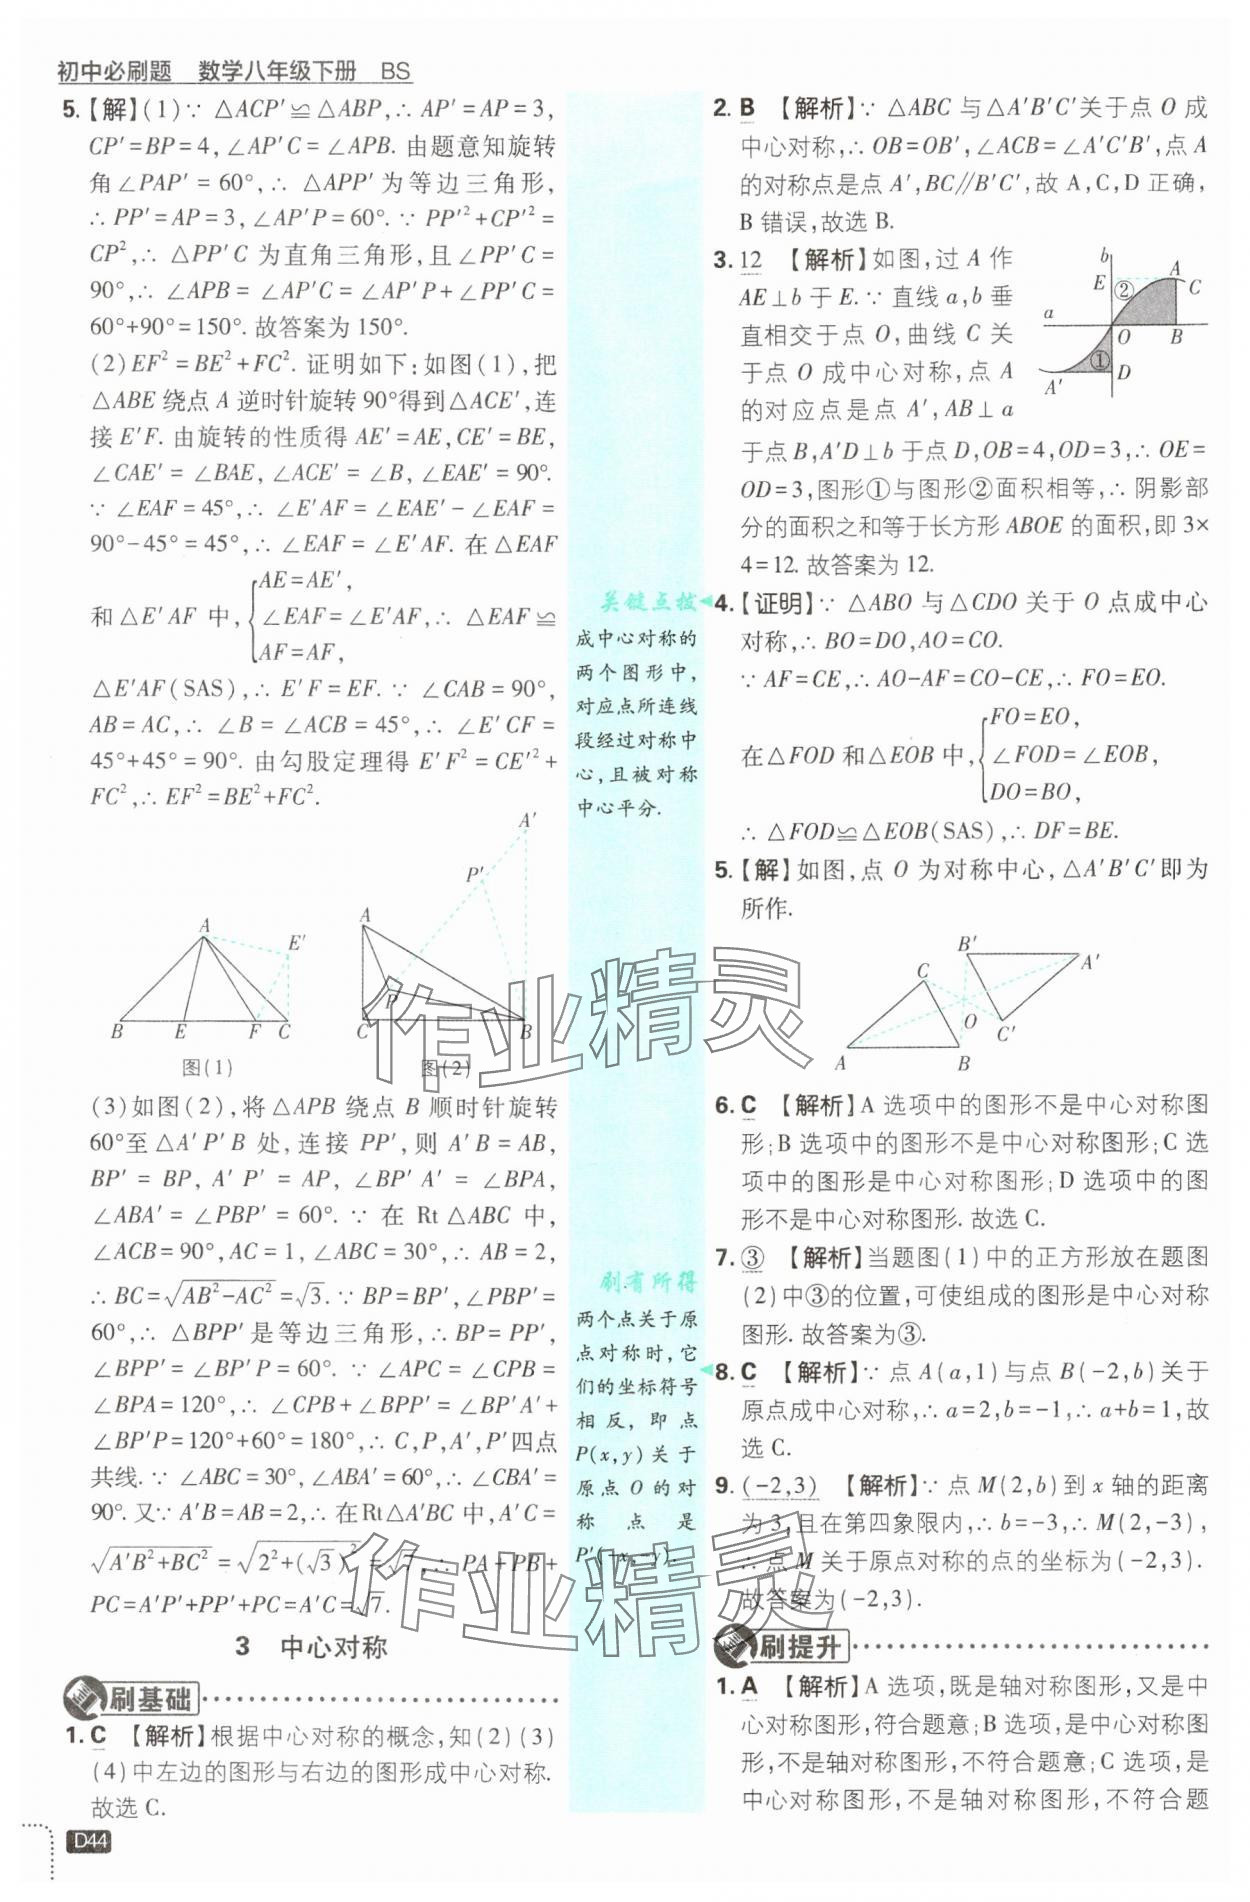 初中必刷题 数学八年级下册 BS
5.【解】(1)∵ △ACP′≌△ABP,∴ AP′=AP=3,
CP′=BP=4,∠AP′C=∠APB. 由题意知旋转
角∠PAP′=60°,∴ △APP′为等边三角形,
∴ PP′=AP=3,∠AP′P=60°. ∵ PP′²+CP′²=
CP²,∴ △PP′C 为直角三角形,且∠PP′C=
90°,∴ ∠APB=∠AP′C=∠AP′P+∠PP′C=
60°+90°=150°. 故答案为 150°.
(2)EF²=BE²+FC². 证明如下:如图(1),把
△ABE 绕点 A 逆时针旋转 90°得到△ACE′,连
接 E′F. 由旋转的性质得 AE′=AE,CE′=BE,
∠CAE′=∠BAE,∠ACE′=∠B,∠EAE′=90°.
∵ ∠EAF=45°,∴ ∠E′AF=∠EAE′-∠EAF=
90°-45°=45°,∴ ∠EAF=∠E′AF. 在△EAF
AE=AE′,
和△E′AF 中,{∠EAF=∠E′AF,∴ △EAF≌
AF=AF,
△E′AF(SAS),∴ E′F=EF. ∵ ∠CAB=90°,
AB=AC,∴ ∠B=∠ACB=45°,∴ ∠E′CF=
45°+45°=90°. 由勾股定理得 E′F²=CE′²+
FC²,∴ EF²=BE²+FC².
A
E′
B E F C
图(1)
A′
P′
A
P
C B
图(2)
(3)如图(2),将△APB 绕点 B 顺时针旋转
60°至△A′P′B 处,连接 PP′,则 A′B=AB,
BP′=BP,A′P′=AP,∠BP′A′=∠BPA,
∠ABA′=∠PBP′=60°. ∵ 在 Rt△ABC 中,
∠ACB=90°,AC=1,∠ABC=30°,∴ AB=2,
∴ BC=√(AB²-AC²)=√3. ∵ BP=BP′,∠PBP′=
60°,∴ △BPP′是等边三角形,∴ BP=PP′,
∠BPP′=∠BP′P=60°. ∵ ∠APC=∠CPB=
∠BPA=120°,∴ ∠CPB+∠BPP′=∠BP′A′+
∠BP′P=120°+60°=180°,∴ C,P,A′,P′四点
共线. ∵ ∠ABC=30°,∠ABA′=60°,∴ ∠CBA′=
90°. 又∵ A′B=AB=2,∴ 在Rt△A′BC 中,A′C=
√(A′B²+BC²)=√(2²+(√3)²)=√7,∴ PA+PB+
PC=A′P′+PP′+PC=A′C=√7.
3 中心对称
刷基础
1. C 【解析】根据中心对称的概念,知(2)(3)
(4)中左边的图形与右边的图形成中心对称.
故选 C.
D44
关键点拨
成中心对称的
两个图形中,
对应点所连线
段经过对称中
心,且被对称
中心平分.
刷有所得
两个点关于原
点对称时,它
们的坐标符号
相反,即点
P(x,y)关于
原点 O 的对
称点是
P′(-x,-y).
2. B 【解析】∵ △ABC 与△A′B′C′关于点 O 成
中心对称,∴ OB=OB′,∠ACB=∠A′C′B′,点 A
的对称点是点 A′,BC∥B′C′,故 A,C,D 正确,
B 错误,故选 B.
3. 12 【解析】如图,过 A 作
AE⊥b 于 E. ∵ 直线 a,b 垂
直相交于点 O,曲线 C 关
于点 O 成中心对称,点 A
的对应点是点 A′,AB⊥a
b
E ② A C
a
O B
① D
A′
于点 B,A′D⊥b 于点 D,OB=4,OD=3,∴ OE=
OD=3,图形①与图形②面积相等,∴ 阴影部
分的面积之和等于长方形 ABOE 的面积,即 3×
4=12. 故答案为 12.
4.【证明】∵ △ABO 与△CDO 关于 O 点成中心
对称,∴ BO=DO,AO=CO.
∵ AF=CE,∴ AO-AF=CO-CE,∴ FO=EO.
FO=EO,
在△FOD 和△EOB 中,{∠FOD=∠EOB,
DO=BO,
∴ △FOD≌△EOB(SAS),∴ DF=BE.
5.【解】如图,点 O 为对称中心,△A′B′C′即为
所作.
B′ A′
C
O C′
A B
6. C 【解析】A 选项中的图形不是中心对称图
形;B 选项中的图形不是中心对称图形;C 选
项中的图形是中心对称图形;D 选项中的图
形不是中心对称图形. 故选 C.
7. ③ 【解析】当题图(1)中的正方形放在题图
(2)中③的位置,可使组成的图形是中心对称
图形. 故答案为③.
8. C 【解析】∵ 点 A(a,1)与点 B(-2,b)关于
原点成中心对称,∴ a=2,b=-1,∴ a+b=1,故
选 C.
9. (-2,3) 【解析】∵ 点 M(2,b)到 x 轴的距离
为 3,且在第四象限内,∴ b=-3,∴ M(2,-3),
∴ 点 M 关于原点对称的点的坐标为(-2,3).
故答案为(-2,3).
刷提升
1. A 【解析】A 选项,既是轴对称图形,又是中
心对称图形,符合题意;B 选项,是中心对称图
形,不是轴对称图形,不符合题意;C 选项,是
中心对称图形,不是轴对称图形,不符合题
作业精灵
作业精灵